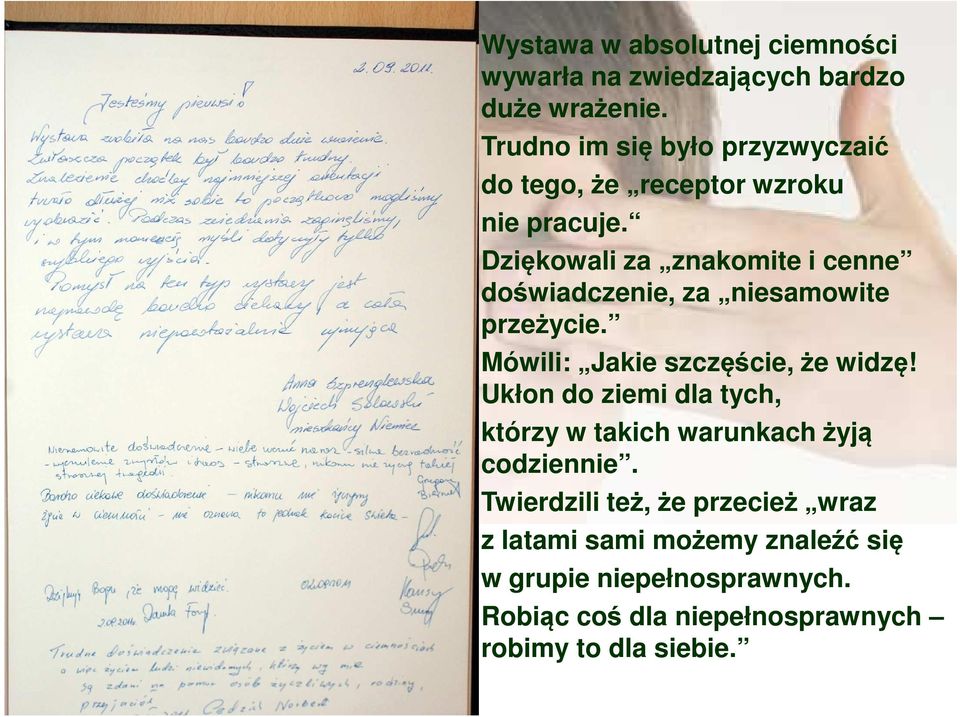 2.09.2011.
Jesteśmy pierwsi!
Wystawa zrobiła na nas bardzo duże wrażenie.
Zwłaszcza początek był bardzo trudny.
Znalezienie choćby najmniejszej orientacji
trwało dłużej niż sobie to początkowo mogliśmy
wyobrazić. Podczas zwiedzania zaginęliśmy,
i w tym momencie myśli dotyczyły tylko
szybkiego wyjścia.
Pomysł na ten typ wystawy jest
naprawdę bardzo ciekawy, a cała
wystawa niepowtarzalnie ujmująca
Anna Szprenglewska
Wojciech Sołowski
mieszkańcy Niemiec
Niesamowite doświadczenie – silna bezradność
– strasznie, nikomu nie życzę takiej
strasznej tragedii.
Bardzo ciekawe doświadczenie – nikomu nie życzymy
Życie w ciemności – nie oznacza to jednak końca świata –
Dziękuję Bogu, że mogę widzieć.
2.09.2011r. Danka
02.09.2011
Trudne doświadczenie związane z życiem w ciemnościach
a więc życiem ludzi niewidomych, którzy
są zdani na pomoc osób życzliwych, rodziny,
przyjaciół. Norbert
Wystawa w absolutnej ciemności
wywarła na zwiedzających bardzo
duże wrażenie.
Trudno im się było przyzwyczaić
do tego, że „receptor wzroku
nie pracuje.“
Dziękowali za „znakomite i cenne”
doświadczenie, za „niesamowite
przeżycie.”
Mówili: „Jakie szczęście, że widzę!
Ukłon do ziemi dla tych,
którzy w takich warunkach żyją
codziennie”.
Twierdzili też, że przecież „wraz
z latami sami możemy znaleźć się
w grupie niepełnosprawnych.
Robiąc coś dla niepełnosprawnych –
robimy to dla siebie.”